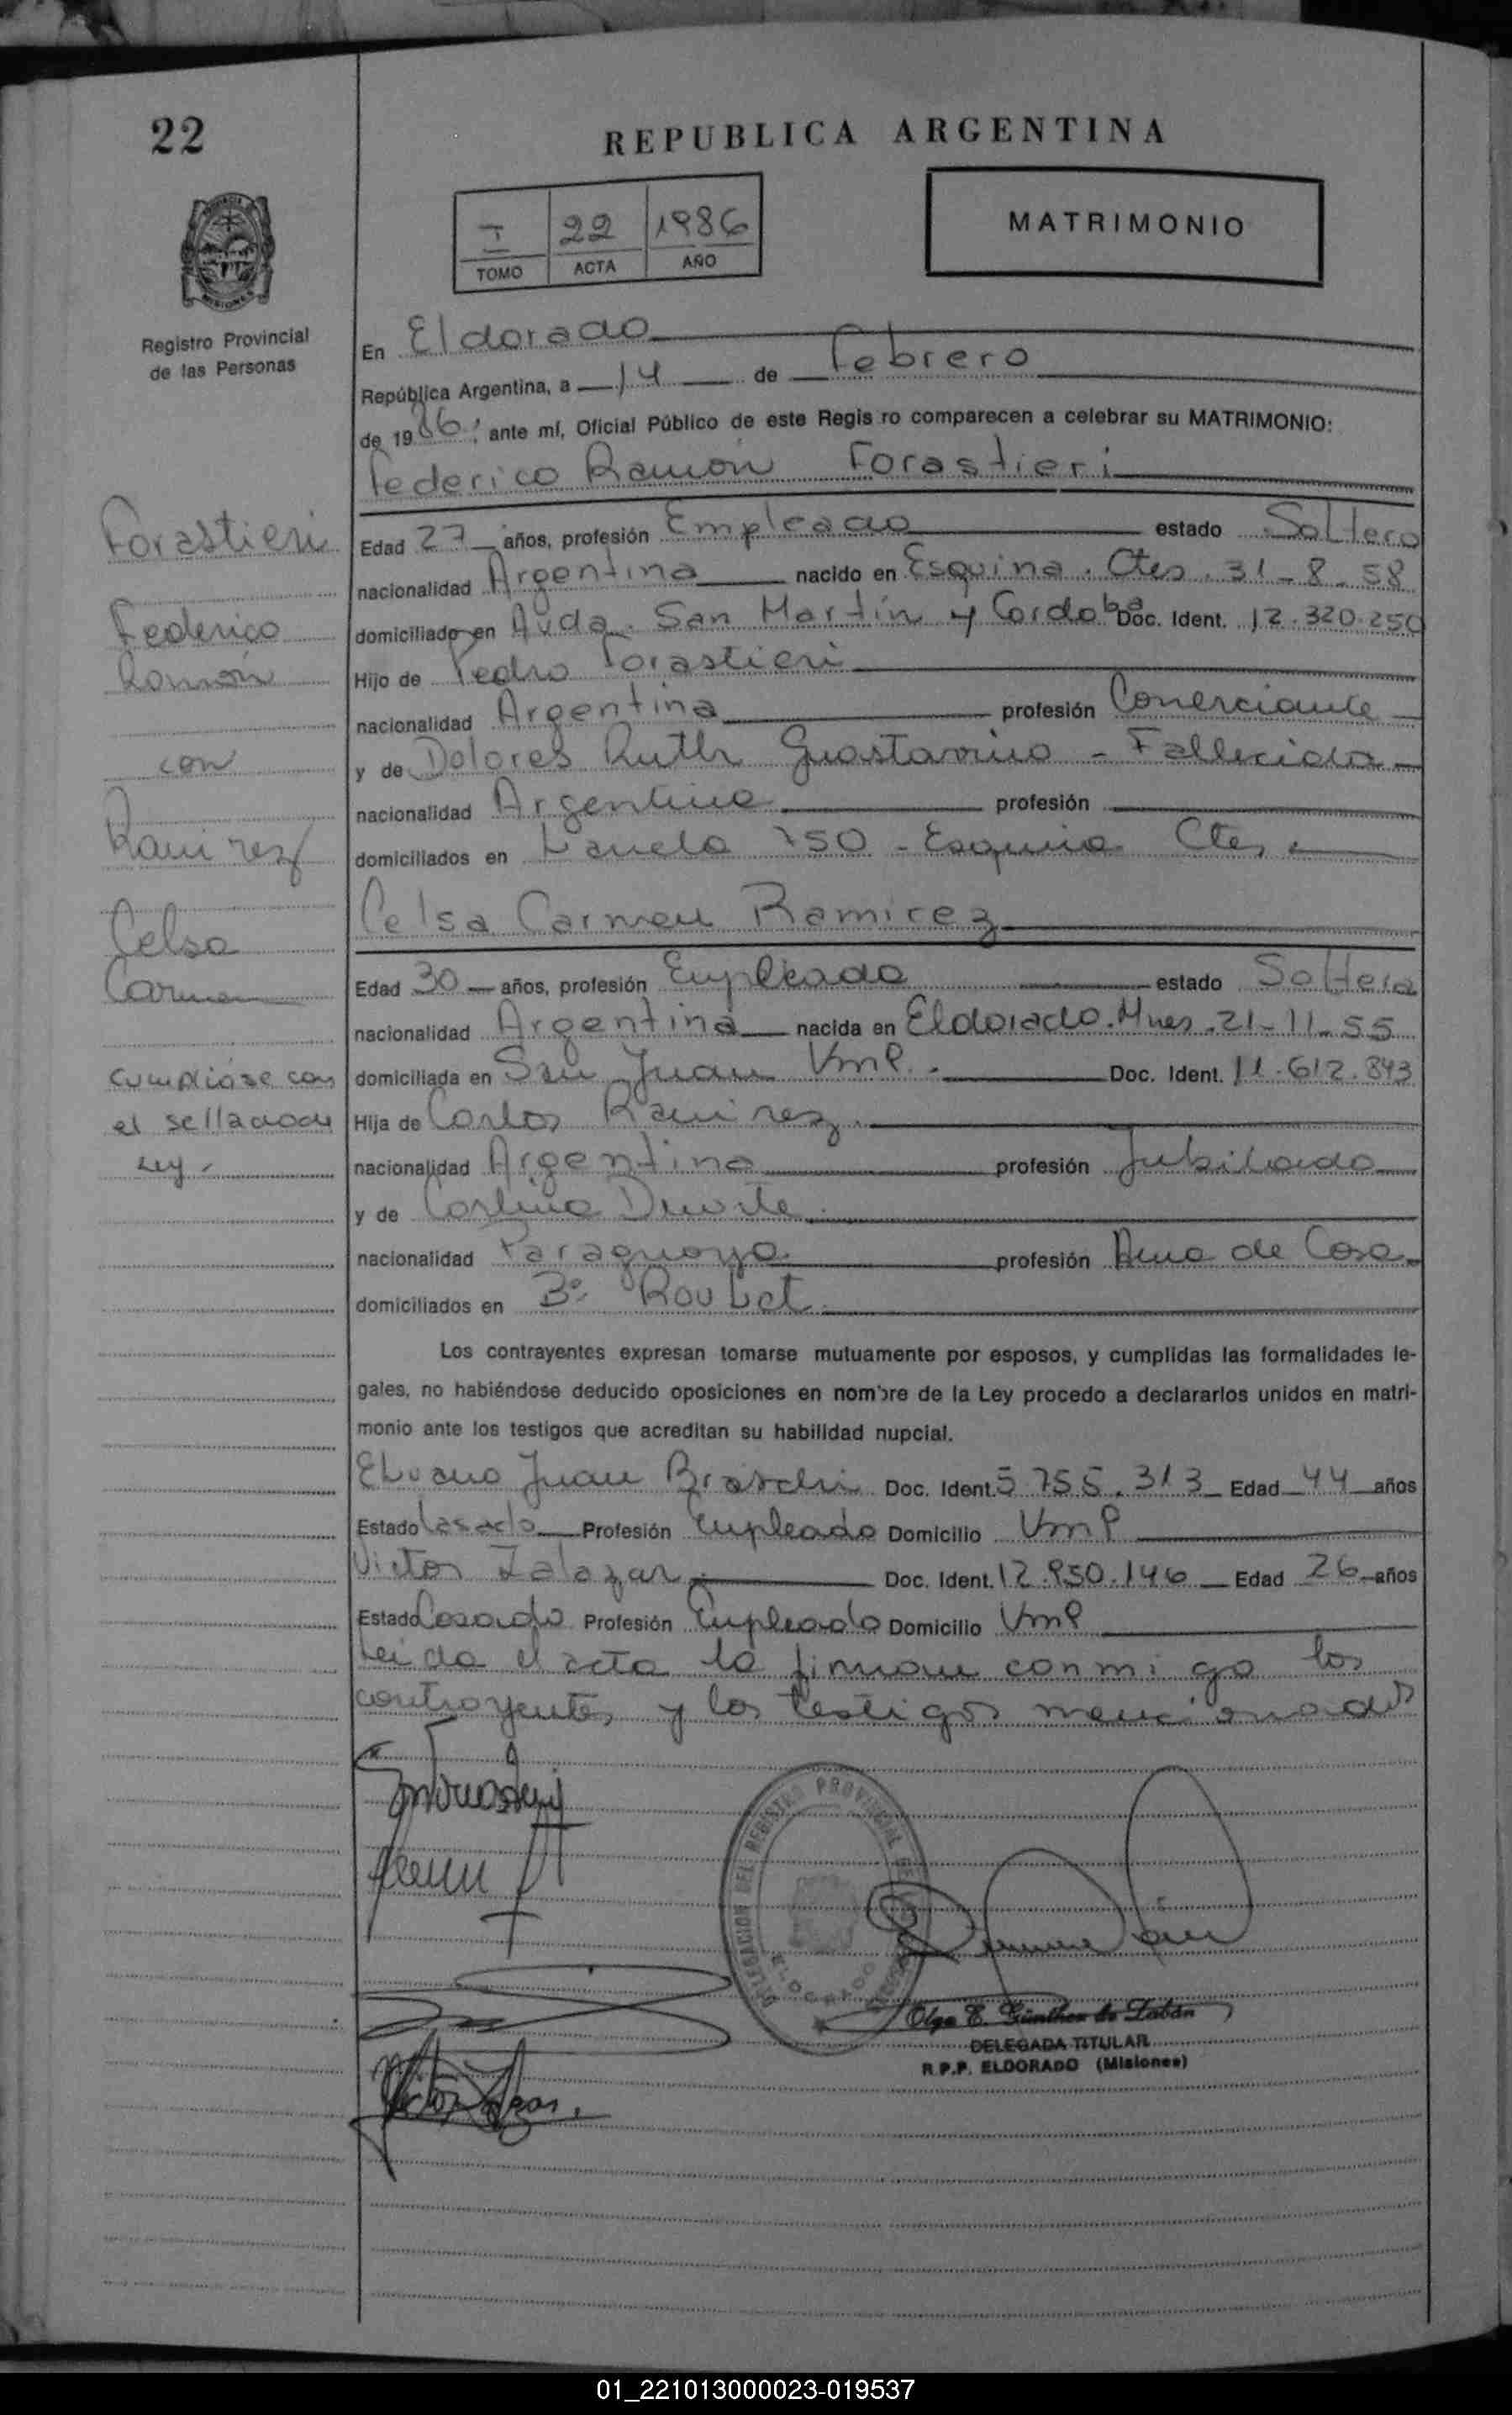 22
REPUBLICA ARGENTINA
I 22 1986
TOMO ACTA AÑO
MATRIMONIO
MISIONES
Registro Provincial
de las Personas
En Eldorado
República Argentina, a 14 de Febrero
de 1986; ante mí, Oficial Público de este Regis ro comparecen a celebrar su MATRIMONIO:
Federico Ramón Forastieri
Edad 27 años, profesión Empleado estado Soltero
nacionalidad Argentina nacido en Esquina. Ctes. 31-8-58
domiciliado en Avda. San Martín y Cordoba Doc. Ident. 12.320.250
Hijo de Pedro Forastieri
nacionalidad Argentina profesión Comerciante
y de Dolores Ruth Guastavino - Fallecida
nacionalidad Argentina profesión
domiciliados en 750 - Esquina Ctes
Celsa Carmen Ramirez
Edad 30 años, profesión Empleada estado Soltera
nacionalidad Argentina nacida en Eldorado. Mnes. 21-11-55
domiciliada en San Juan VmP. Doc. Ident. 11.612.843
Hija de Carlos Ramirez
nacionalidad Argentina profesión Jubilado
y de Duarte
nacionalidad Paraguaya profesión Ama de Casa
domiciliados en Bº Roubet
Los contrayentes expresan tomarse mutuamente por esposos, y cumplidas las formalidades le-
gales, no habiéndose deducido oposiciones en nombre de la Ley procedo a declararlos unidos en matri-
monio ante los testigos que acreditan su habilidad nupcial.
Juan Doc. Ident. 5.755.313 Edad 44 años
Estado Casado Profesión Empleado Domicilio VmP
Victor Zalazar Doc. Ident. 12.950.146 Edad 26 años
Estado Casado Profesión Empleado Domicilio VmP
Leida el acta la firman conmigo los
contrayentes y los testigos mencionados
Forastieri
Federico
Ramón
con
Ramirez
Celsa
Carmen
cumpliose con
el sellado de
Ley.
DELEGACION DEL REGISTRO PROVINCIAL DE
ELDORADO
Olga E. Günther de Zabán
DELEGADA TITULAR
R.P.P. ELDORADO (Misiones)
01_221013000023-019537